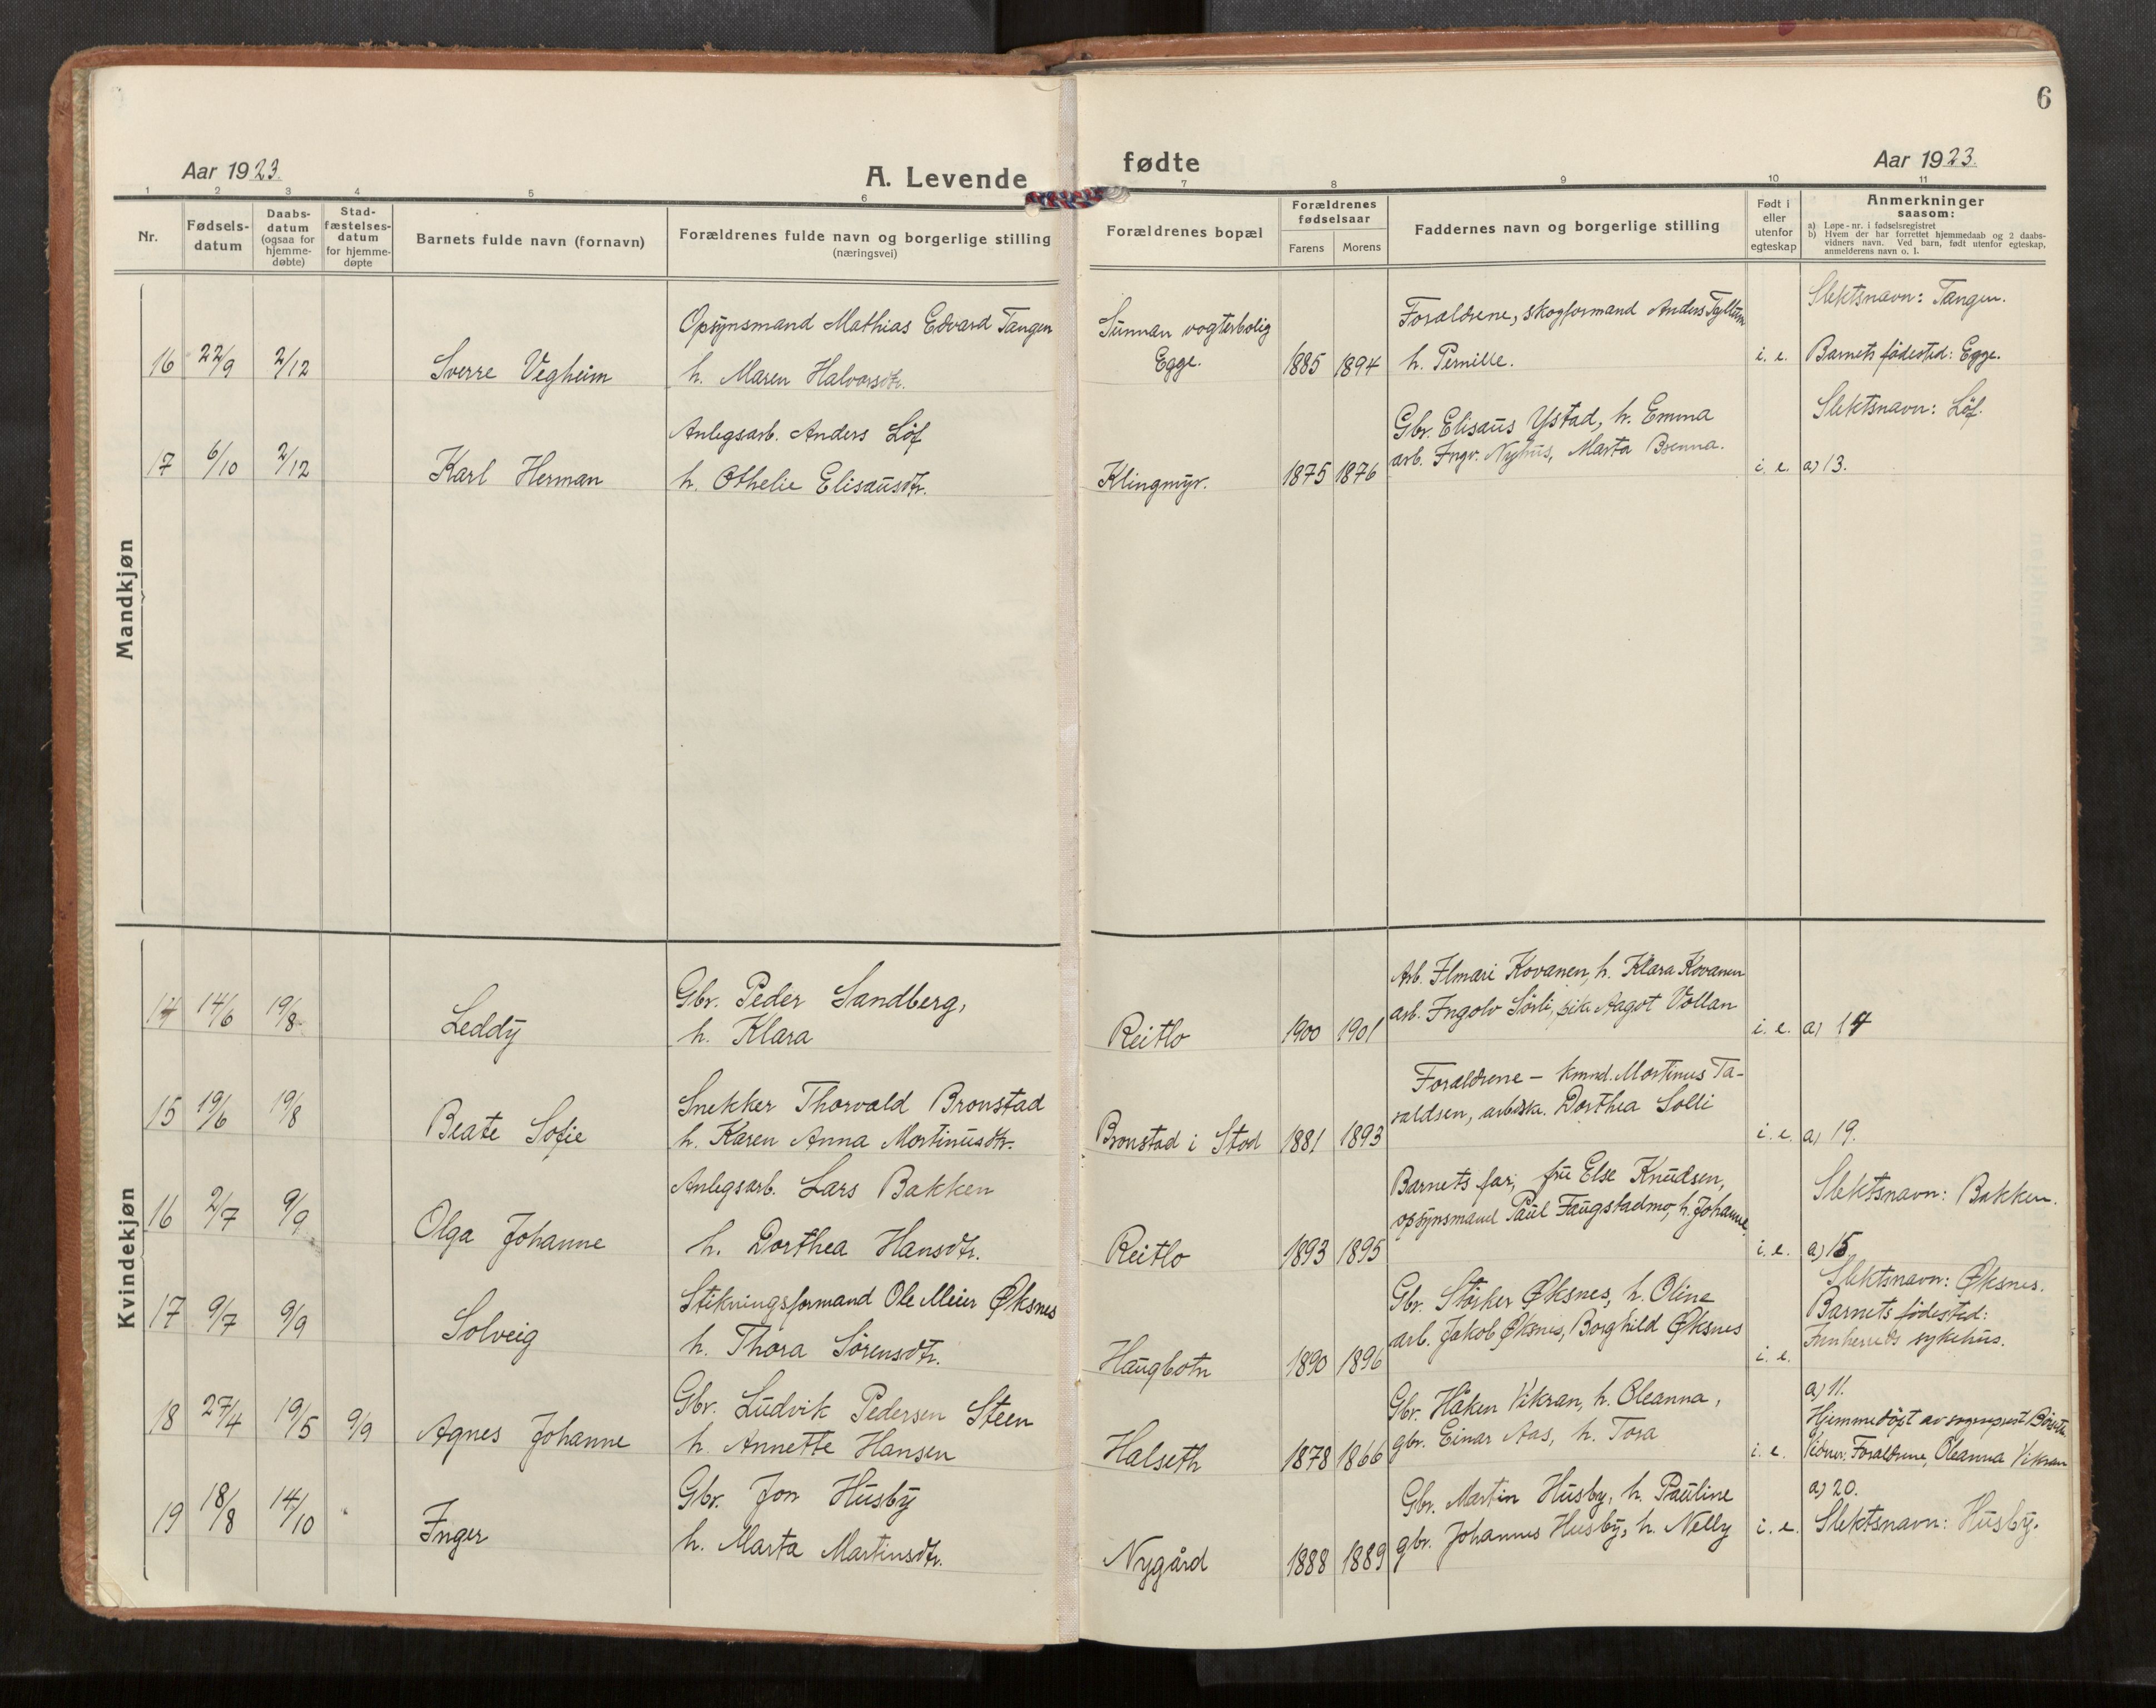 6
Aar 1923.
A. Levende
fødte
Aar 1923.
1 2 3 4 5 6 7 8 9 10 11
Nr.
Fødsels-
datum
Daabs-
datum
(ogsaa for
hjemme-
døbte)
Stad-
fæstelses-
datum
for hjemme-
døpte
Barnets fulde navn (fornavn)
Forældrenes fulde navn og borgerlige stilling
(næringsvei)
Forældrenes bopæl
Forældrenes
fødselsaar
Farens Morens
Faddernes navn og borgerlige stilling
Født i
eller
utenfor
egteskap
Anmerkninger
saasom:
a) Løpe-nr. i fødselsregistret
b) Hvem der har forrettet hjemmedaab og 2 daabs-
vidners navn. Ved barn, født utenfor egteskap,
anmelderens navn o. l.
Mandkjøn
16 22/9 2/12
Sverre Vegheim
Opsynsmand Mathias Edvard Tangen
h. Maren Halvorsdtr.
Sunnan vogterbolig
Egge.
1885 1894
Forældrene, skogformand Anders
h. Pernille.
i. e.
Slektsnavn: Tangen.
Barnets fødested: Egge.
17 6/10 2/12
Karl Herman
Anlegsarb. Anders Löf
h. Othelie Elisæusdtr.
Klingmyr.
1875 1876
Gbr. Elisæus Ystad, h. Emma
arb. Ingv. Nyhus, Marta Brenna.
i. e.
Slektsnavn: Löf.
a) 13.
Kvindekjøn
14 14/6 19/8
Leddy
Gbr. Peder Sandberg,
h. Klara
Reitlo
1900 1901
Arb. Ilmari Kovanen, h. Klara Kovanen
arb. Ingolv Sörli, pike Aagot Vollan
i. e.
a) 14
15 19/6 19/8
Beate Sofie
Snekker Thorvald Bronstad
h. Karen Anna Mortinusdtr.
Bronstad i Stod
1881 1893
Forældrene – kmnd. Mortinus Ta-
raldsen, arbdsk. Dorthea Solli
i. e.
a) 19.
16 2/7 9/9
Olga Johanne
Anlegsarb. Lars Bakken
h. Dorthea Hansdtr.
Reitlo
1893 1895
Barnets far, frue Else Knudsen,
opsynsmand Paul Faugstadmo, h. Johanne.
i. e.
Slektsnavn: Bakken.
a) 15
17 9/7 9/9
Solveig
Stikningsformand Ole Meier Øksnes
h. Thora Sörensdtr.
Haugbotn
1890 1896
Gbr. Störker Øksnes, h. Oline
arb. Jakob Øksnes, Borghild Øksnes
i. e.
Slektsnavn: Øksnes.
Barnets fødested:
Innherreds sykehus.
18 27/4 19/5 9/9
Agnes Johanne
Gbr. Ludvik Pedersen Steen
h. Annette Hansen
Halseth
1878 1866
Gbr. Håken Vikran, h. Oleanna,
gbr. Einar Aas, h. Tora
i. e.
a) 11.
Hjemmedöpt av sogneprest
Vidner: Forældrene, Oleanna Vikran
19 18/8 14/10
Inger
Gbr. Jon Husby
h. Marta Martinsdtr.
Nygård
1888 1889
Gbr. Martin Husby, h. Pauline
gbr. Johannes Husby, h. Nelly
i. e.
a) 20.
Slektsnavn: Husby.